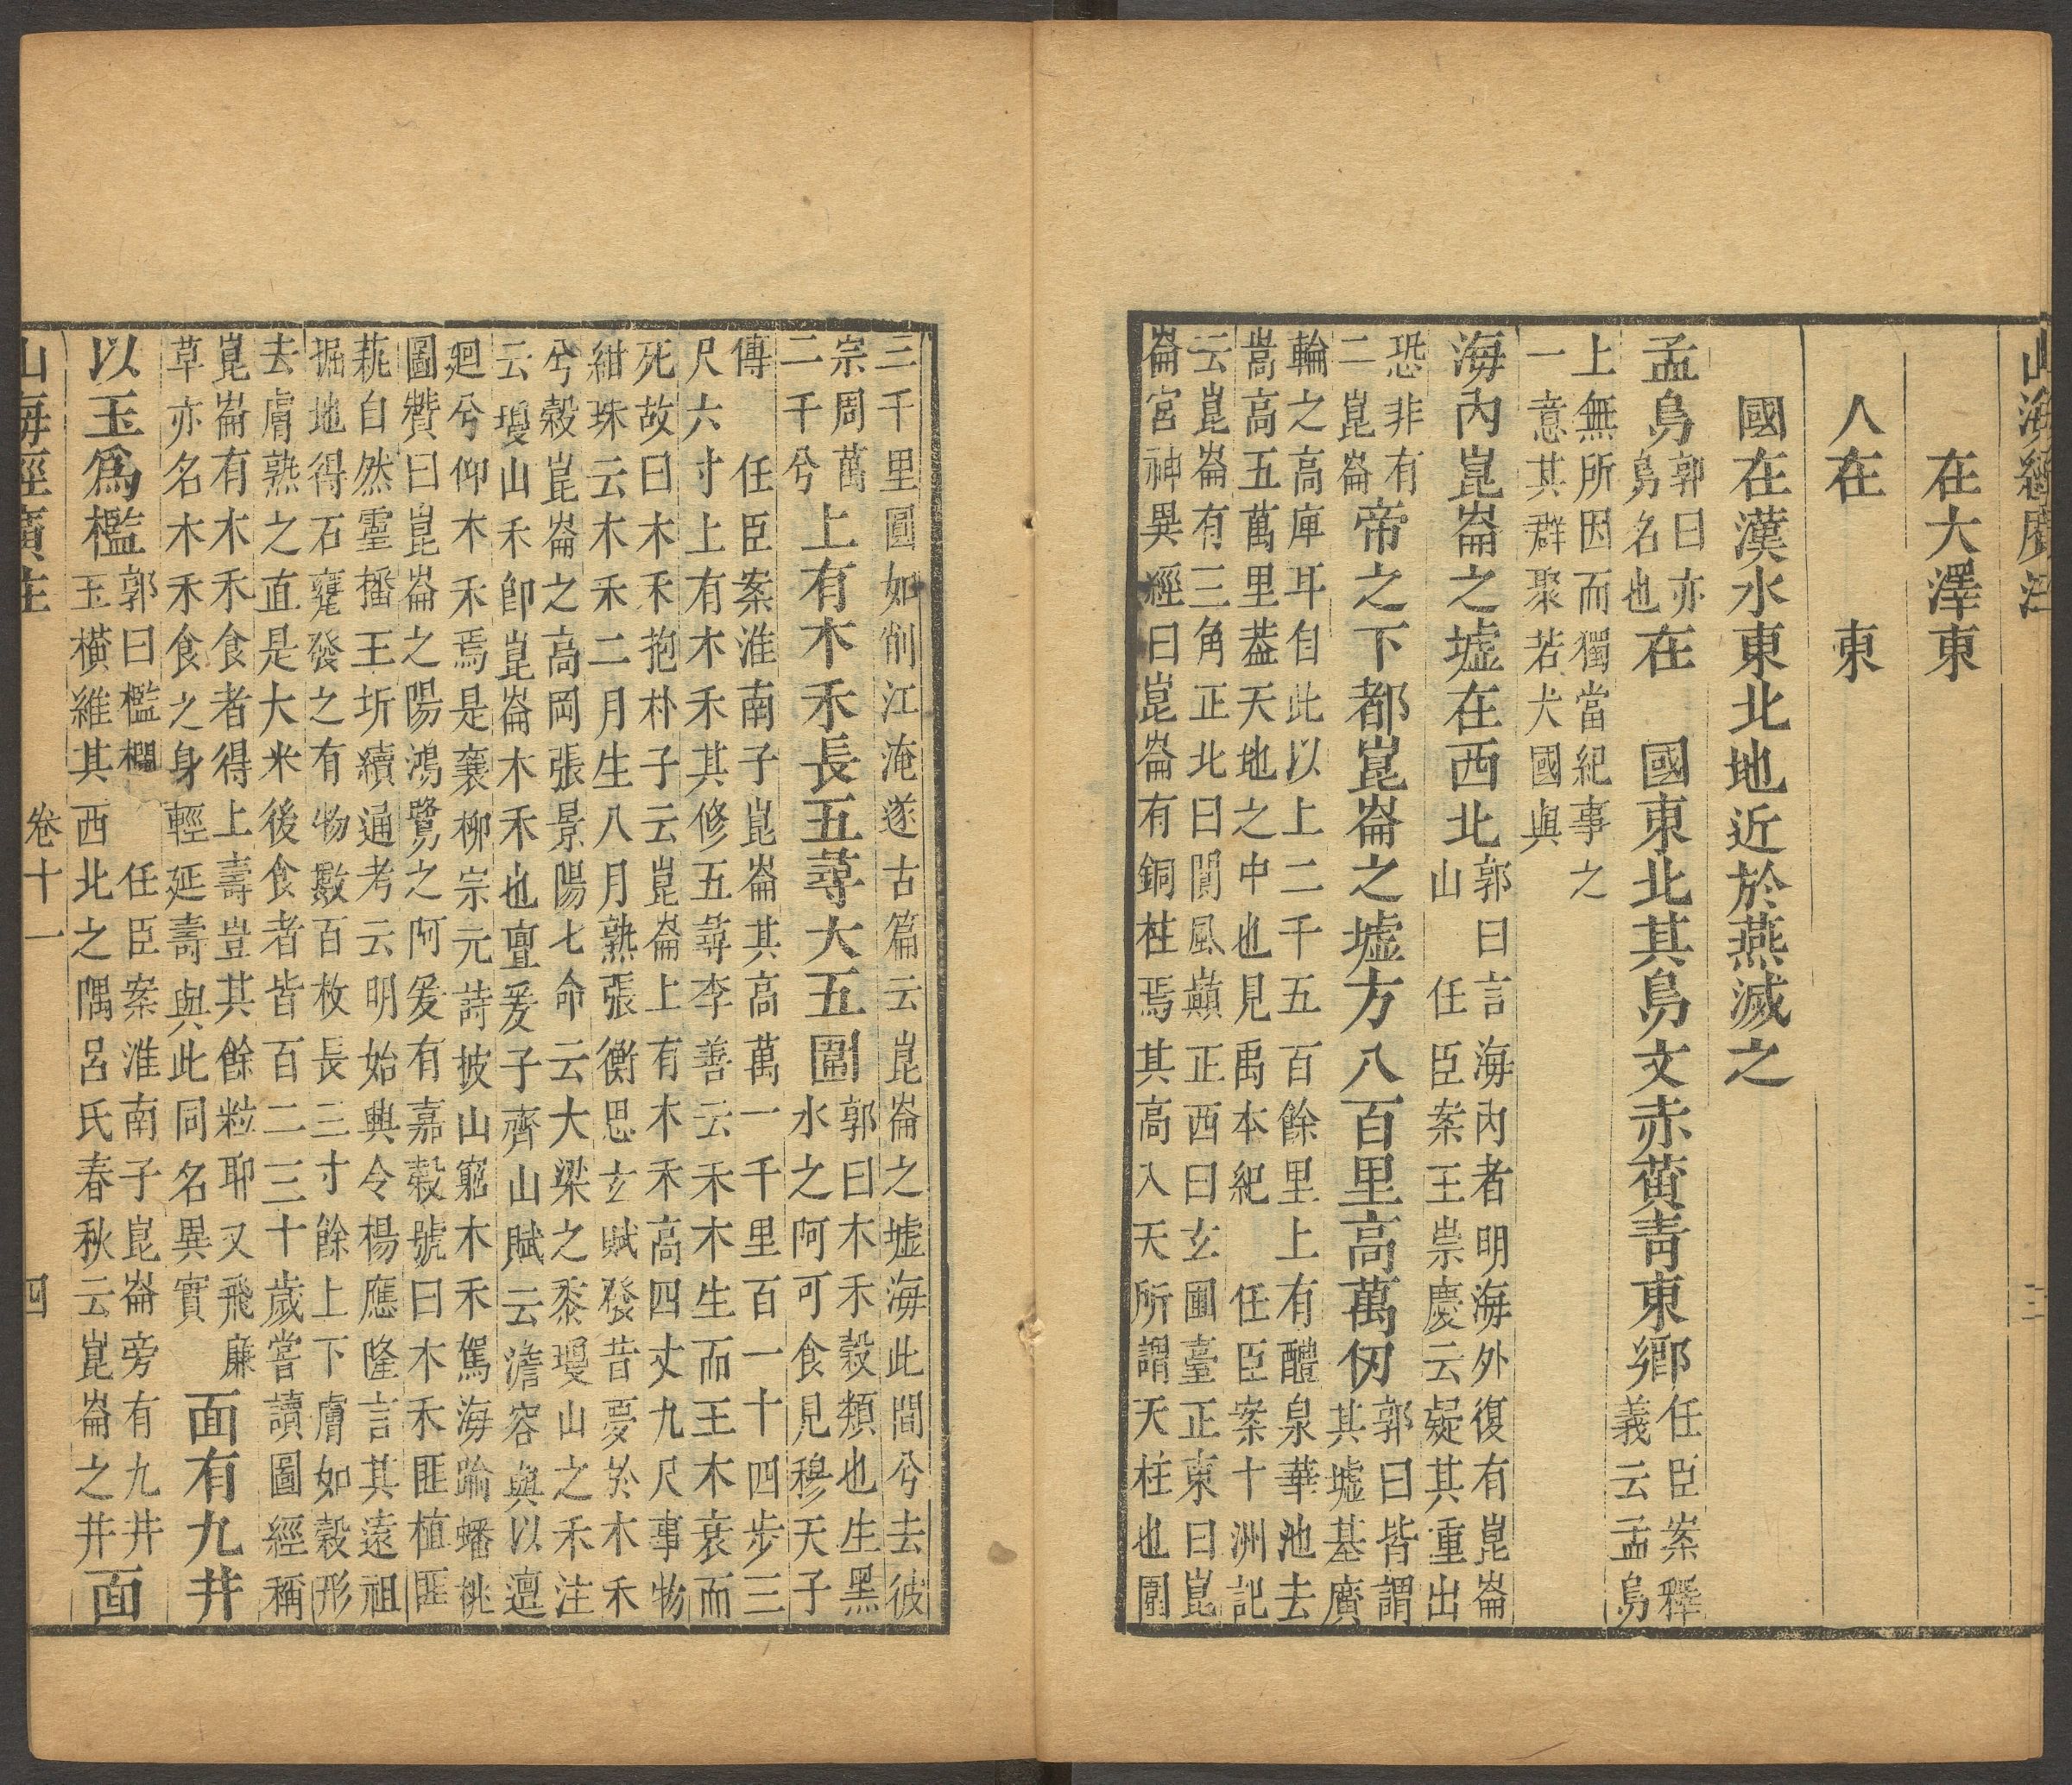 山海經廣注 三
在大澤東
人在 東
國在漢水東北地近於燕滅之
孟鳥郭曰亦鳥名也在 國東北其鳥文赤黃青東鄉任臣案釋義云孟鳥
上無所因而獨當紀事之
一意其群聚若犬國與
海內崑崙之墟在西北郭曰言海內者明海外復有崑崙山 任臣案王崇慶云疑其重出
恐非有二崑崙帝之下都崑崙之墟方八百里高萬仞郭曰皆謂其墟基廣
輪之高庳耳自此以上二千五百餘里上有醴泉華池去
嵩高五萬里葢天地之中也見禹本紀 任臣案十洲記
云崑崙有三角正北曰閬風巔正西曰玄圃臺正東曰崑
崙宮神異經曰崑崙有銅柱焉其高入天所謂天柱也圍
三千里圓如削江淹遂古篇云崑崙之墟海此間兮去彼
宗周萬二千兮上有木禾長五尋大五圍郭曰木禾穀類也生黑水之阿可食見穆天子
傳 任臣案淮南子崑崙其高萬一千里百一十四步三
尺六寸上有木禾其修五尋李善云禾木生而王木衰而
死故曰木禾抱朴子云崑崙上有木禾高四丈九尺事物
紺珠云木禾二月生八月熟張衡思玄賦發昔夢於木禾
兮穀崑崙之高岡張景陽七命云大梁之黍瓊山之禾注
云瓊山禾卽崑崙木禾也亶爰子齊山賦云澹容與以邅
廻兮仰木禾焉是蘘柳宗元詩披山窮木禾駕海踰蟠桃
圖贊曰崑崙之陽鴻鷺之阿爰有嘉穀號曰木禾匪植匪
蓺自然靈播王圻續通考云明始興令楊應隆言其遠祖
掘地得石甕發之有物數百枚長三寸餘上下膚如穀形
去膚熟之直是大米後食者皆百二三十歲嘗讀圖經稱
崑崙有木禾食者得上壽豈其餘粒耶又飛廉草亦名木禾食之身輕延壽與此同名異實面有九井
以玉爲檻郭曰檻欄 任臣案淮南子崑崙旁有九井玉橫維其西北之隅呂氏春秋云崑崙之井面
山海經廣注 卷十一 四